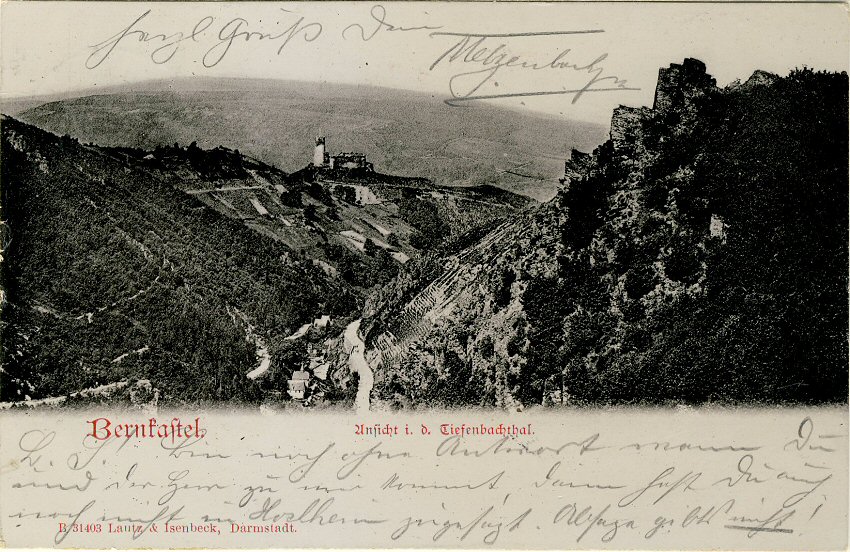 Herzl. Gruß Dein
Metzenbach
Bernkastel.
Ansicht i. d. Tiefenbachthal.
L. J.! Bin noch ohne Antwort wann Du
und der Herr zu mir kommt, dann hast Du auch
noch nicht in zugesagt. Absage gibts nicht!
B 31403 Lautz & Isenbeck, Darmstadt.